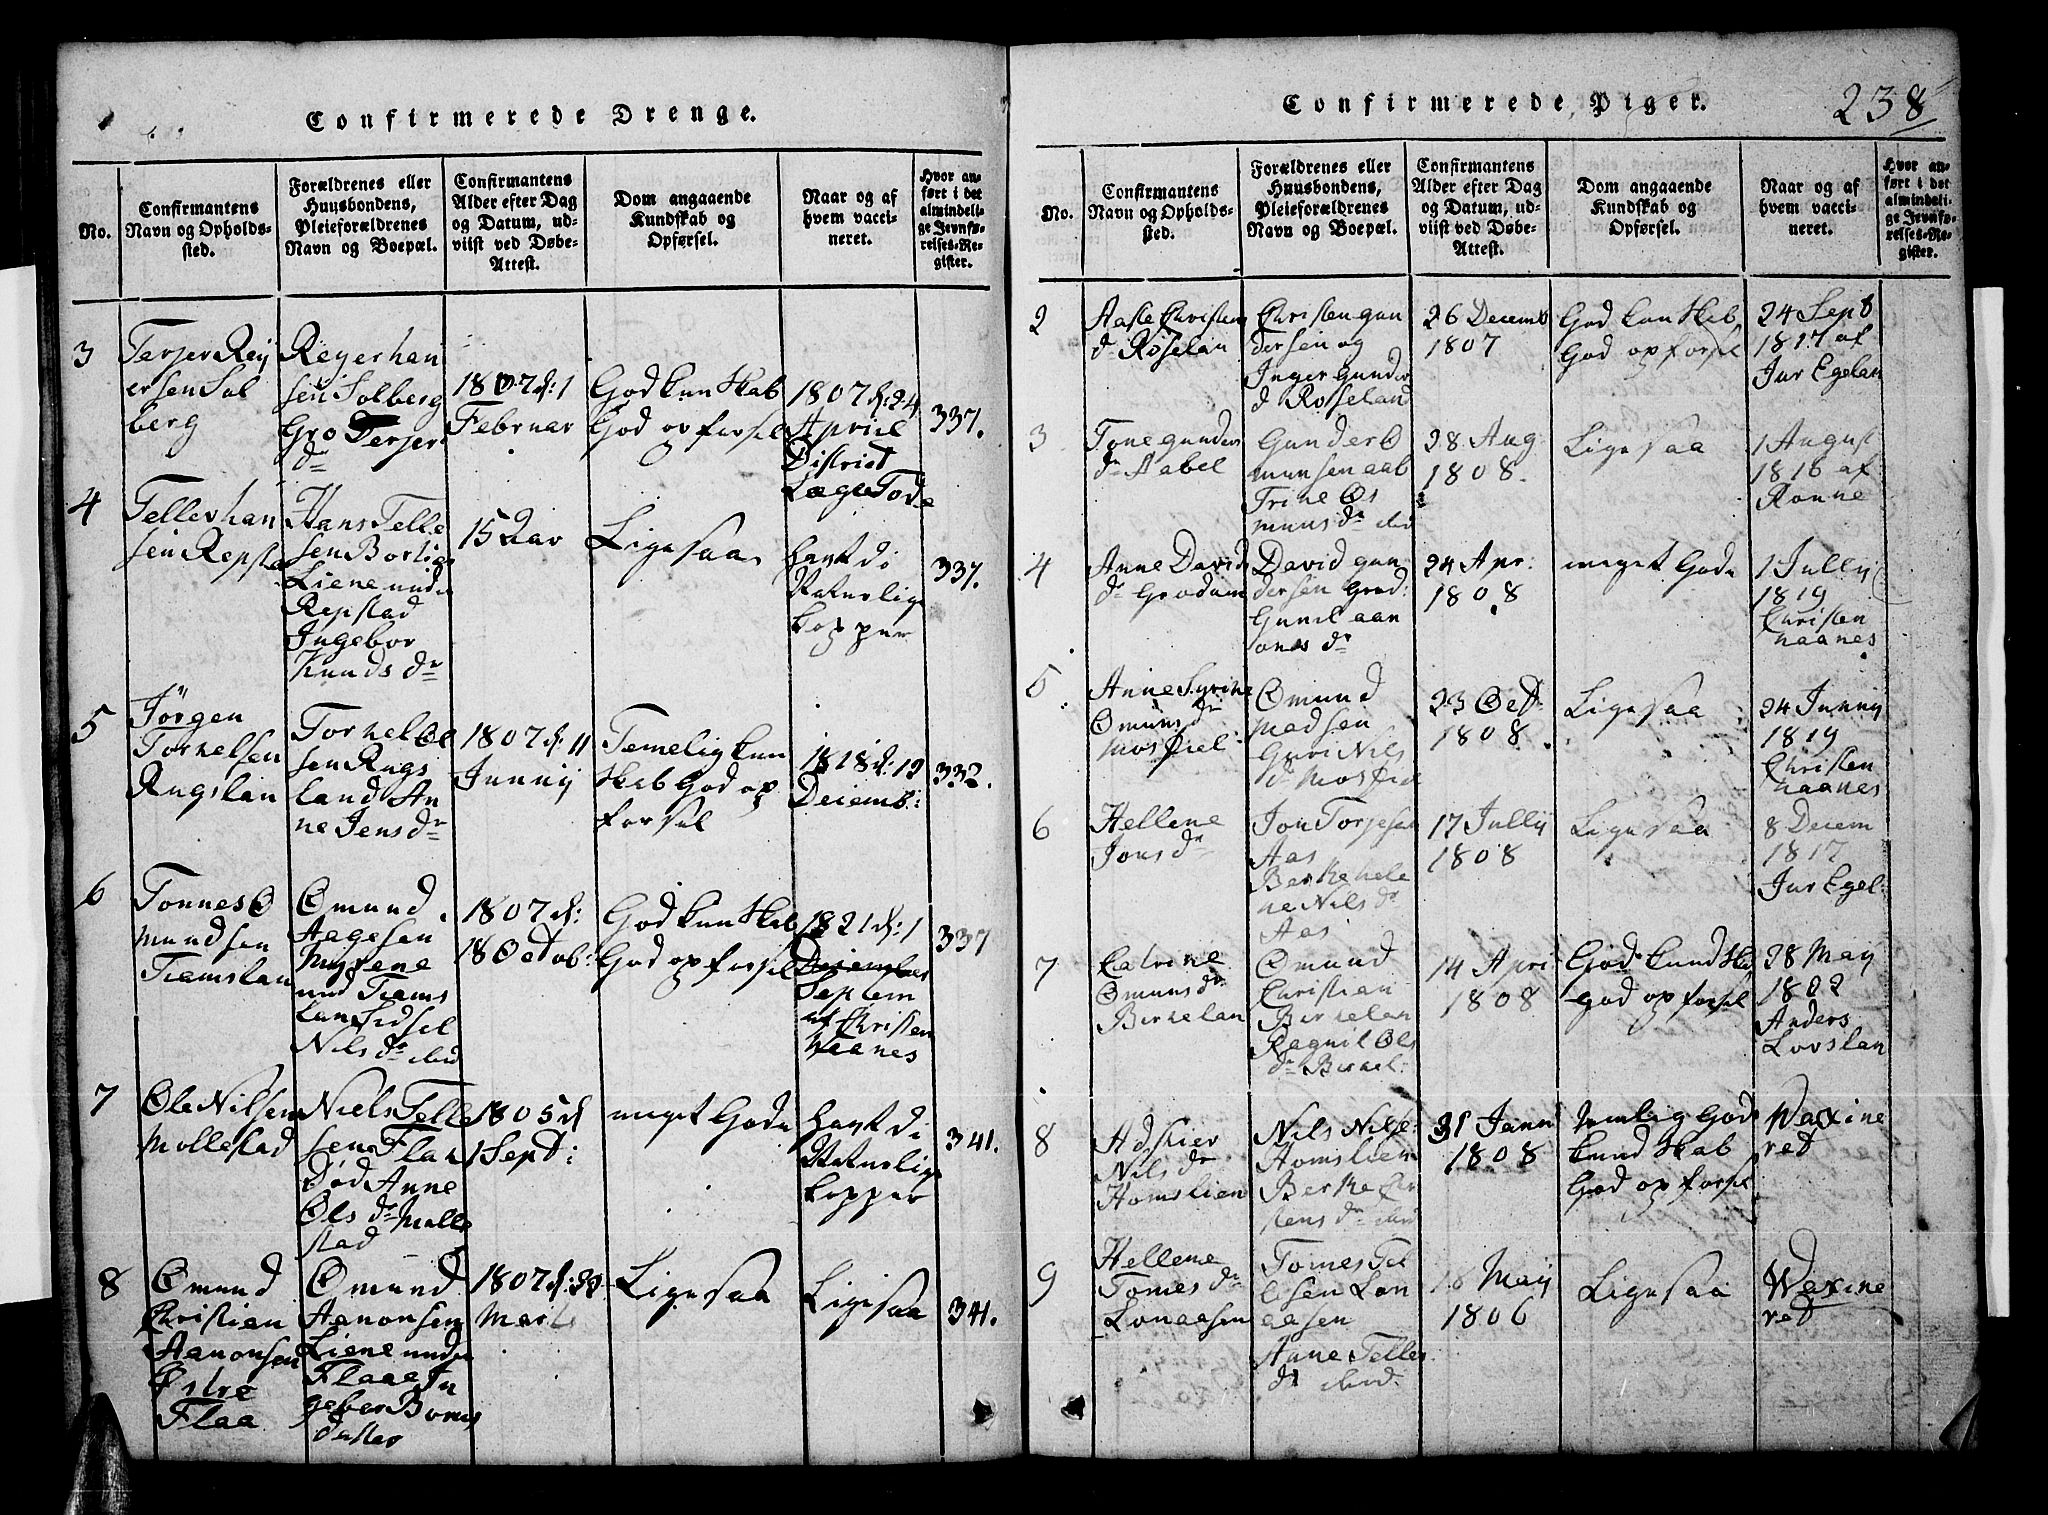 Confirmerede Drenge.
No.
Confirmantens
Navn og Opholds-
sted.
Forældrenes eller
Huusbondens,
Pleieforældrenes
Navn og Boepæl.
Confirmantens
Alder efter Dag
og Datum, ud-
viist ved Døbe-
Attest.
Dom angaaende
Kundskab og
Opførsel.
Naar og af
hvem vacci-
neret.
Hvor an-
ført i det
almindeli-
ge Jevnfø-
relses-Re-
gister.
3
Terjer Reij
ersen Sol
berg
Reijer han
sen Solberg
Gro Terjer
dr
1807 d: 1
Februar
God kun Skab
God op forsel
1807 d: 24
Apriil
District
Læge Tode
337.
4
Teller han
sen Repsta
Hans Telle
sen Borlies
Liene under
Repstad
Ingebor
Knuds dr
15 2 aar
Lige saa
havt di
Naturlige
kopper
337.
5
Jörgen
Torkelsen
Rugslan
Torkel Ol
sen Rugs
land An
ne Jens dr
1807 d: 11
Junnij
Temelig kun
Skab God op
forsel
1818 d: 12
Decemb:
332.
6
Tonnes O
mundsen
Tramslan
Omund
Aagesen
Myrene
und Trams
lan Sidsel
Nils dr ibid
1807 d:
18 Octob:
God kun Skab
God op forsel
1821 d: 1
Decembes
Septem
af Christen
Naanes
337
7
Ole Nilsen
Mollestad
Niels Telle
sen Flan
Død Anne
Ols dr Molle
stad
1805 d
1 Sept:
meget Gode
havt di
Naturlige
kopper
341.
8
Omund
Christian
Aanonsen
Østre
Flaa
Omund
Aanonsen
Liene under
Flaae In
geber Bornes
datter
1807 d: 30
Marts
Lige saa
Lige saa
341.
Confirmerede Piger.
238
No.
Confirmantens
Navn og Opholds-
sted.
Forældrenes eller
Huusbondens,
Pleieforældrenes
Navn og Boepæl.
Confirmantens
Alder efter Dag
og Datum, ud-
viist ved Døbe-
Attest.
Dom angaaende
Kundskab og
Opførsel.
Naar og af
hvem vacci-
neret.
Hvor an-
ført i det
almindeli-
ge Jevnfø-
relses-Re-
gister.
2
Aasle Christens
dr Roselan
Christen gun
dersen og
Inger gunder
d Rosseland
26 Decemb
1807
God kun Skab
God op forsel
24 Sept
1817 af
Jur Egelan
3
Tone gunders
dr Aabel
Gunder O
munsen aab
Trine Os
muns dr ibid
28 Aug
1808.
Lige saa
1 August
1816 af
Ronne
4
Anne David
dr Grodum
David gun
dersen Grod:
Gunil aan
ones dr
24 Apr:
1808
meget Gode
1 Jullij
1819
Christen
naanes
5
Anne Syrine
Omuns dr
Mosfiel:
Omund
Madsen
Guri Nils
dr Mosfiel
23 Oct
1808.
Lige saa
24 Junnij
1819
Christen
naanes
6
Hellene
Jons dr
Jon Torjesen
Aas
Berthe hele
ne Nils dr
Aas
17 Jullij
1808
Lige saa
8 Decem
1817
Jur Egel:
7
Catrine
Omuns dr
Birkelan
Omund
Christian
Birkelan
Ragnil Ols
dr Birkel:
14 Apri
1808
God kund Ska
God op forsel
28 Maij
1822
Anders
Lovslan
8
Adskier
Nils dr
Homslien
Nils Nilse:
Homslien
Berthe Chr
stens dr ibid
31 Jann
1808
temlig God
kund Skab
God op forsel
Waxine
ret
9
Hellene
Tomes dr
Lonaasen
Tomes Tel
lesen Lon
aasen
Anne Telles
dr ibid.
16 Maij
1806
Lige saa
Waxine
ret